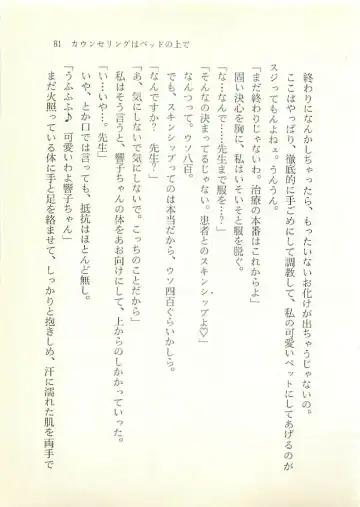 81　カウンセリングはベッドの上で
終わりになんかしちゃったら、もったいないお化けが出ちゃうじゃないの。
ここはやっぱり、徹底的に手ごめにして調教して、私の可愛いペットにしてあげるのが
スジってもんよねェ。うんうん。
「まだ終わりじゃないわ。治療の本番はこれからよ」
固い決心を胸に、私はいそいそと服を脱ぐ。
「な…なんで……先生まで服を……？」
「そんなの決まってるじゃない。患者とのスキンシップよ♡」
なんつって。ウソ八百。
でも、スキンシップってのは本当だから、ウソ四百ぐらいかしら。
「なんですか？　先生？」
「あ、気にしないで気にしないで。こっちのことだから」
私はそう言うと、響子ちゃんの体をあお向けにして、上からのしかかっていった。
「い…いや…。先生」
いや、とか口では言っても、抵抗はほとんど無し。
「うふふふ♪　可愛いわよ響子ちゃん」
まだ火照っている体に手と足を絡ませて、しっかりと抱きしめ、汗に濡れた肌を両手で